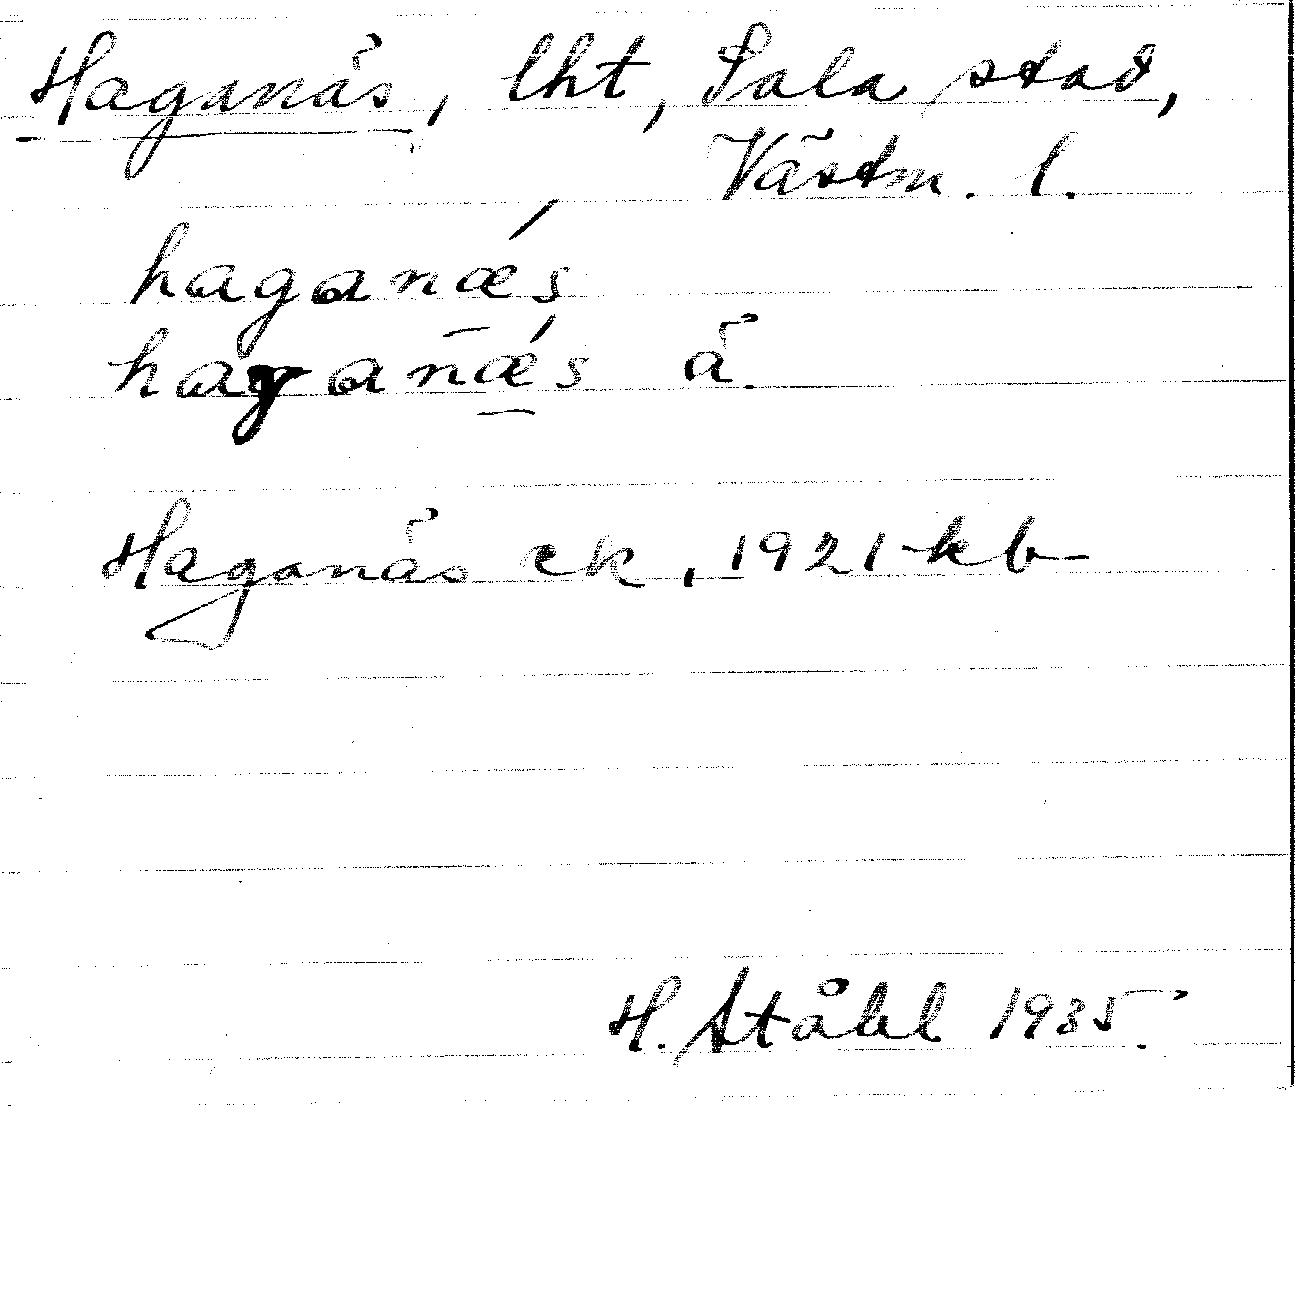 Haganäs, lht, Sala stad,
Västm. l.
haganǽs
haganǽs ä.
Haganäs ek, 1921 kb
H. Ståhl 1935.